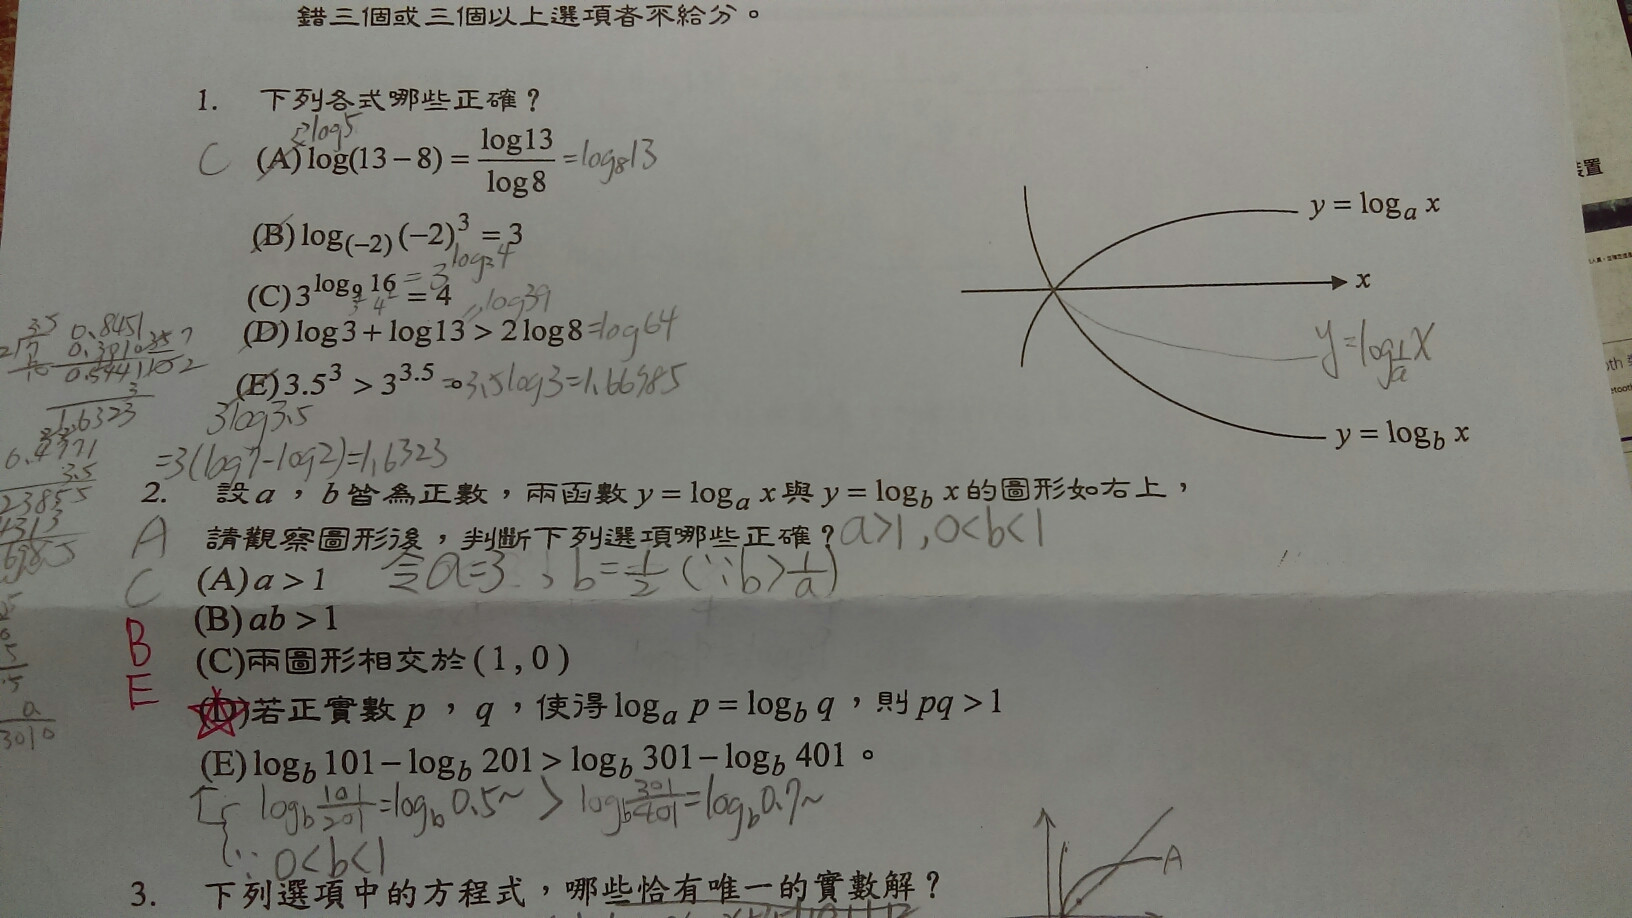 錯三個或三個以上選項者不給分。
1. 下列各式哪些正確？
log5
C (A) log(13－8) = log13/log8 =log₈13
(B) log₍₋₂₎(−2)³ = 3
(C) 3^log₉16 = 4 = 3^log₃4
(D) log3 + log13 > 2log8 =log64
log39
(E) 3.5³ > 3^3.5 。 3.5log3=1.66985
3log3.5
=3(log7-log2)=1.6323
y = logₐ x
x
y=log_(1/a) x
y = log_b x
2. 設a，b皆為正數，兩函數 y = logₐ x 與 y = log_b x 的圖形如右上，
請觀察圖形後，判斷下列選項哪些正確？ a>1, 0<b<1
A
C
B
E
(A) a > 1 令a=3, b=1/2 (∵b>1/a)
(B) ab > 1
(C) 兩圖形相交於(1, 0)
(D) 若正實數 p，q，使得 logₐ p = log_b q，則 pq > 1
(E) log_b 101 − log_b 201 > log_b 301 − log_b 401。
log_b 101/201 =log_b 0.5~ > log_b 301/401 =log_b 0.7~
∵ 0<b<1
A
3. 下列選項中的方程式，哪些恰有唯一的實數解？
3.5
0.8451
0.3010
0.5441
3
1.6323
0.4771
3.5
23855
a
3010
置